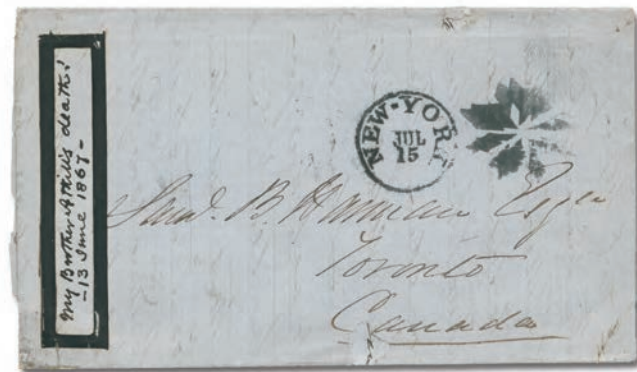 My Brother Athill's death!
-13 June 1867-
NEW-YORK
JUL
15
Saml. B. Harman Esqre
Toronto
Canada